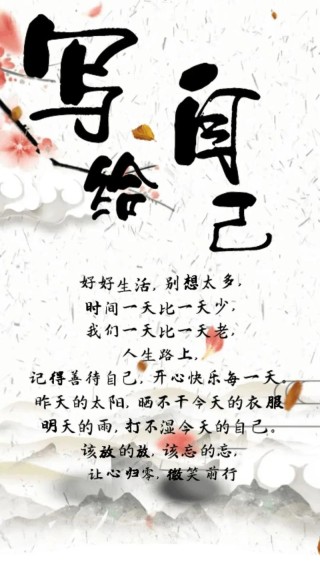 写给
自己
好好生活，别想太多，
时间一天比一天少，
我们一天比一天老，
人生路上，
记得善待自己，开心快乐每一天。
昨天的太阳，晒不干今天的衣服
明天的雨，打不湿今天的自己。
该放的放，该忘的忘，
让心归零，微笑前行